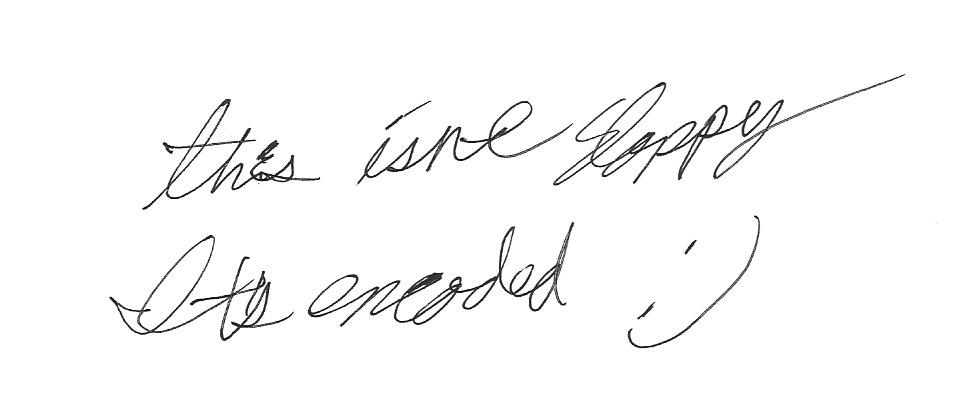 this isnt sloppy
Its encoded :)